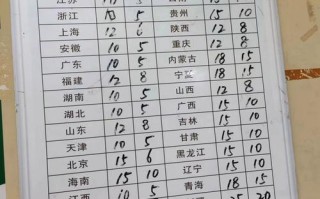 江苏
浙江 10 5 贵州 15 10
上海 12 8 陕西 12 8
安徽 10 5 重庆 12 8
广东 10 5 内蒙古 18 15
福建 12 8 宁夏 18 15
湖南 10 5 山西 12 8
湖北 10 5 广西 15 10
山东 12 8 吉林 15 10
天津 10 5 甘肃 15 10
北京 15 6 黑龙江 15 10
海南 15 10 辽宁 15 10
江西 10 5 青海 18 15
25 20